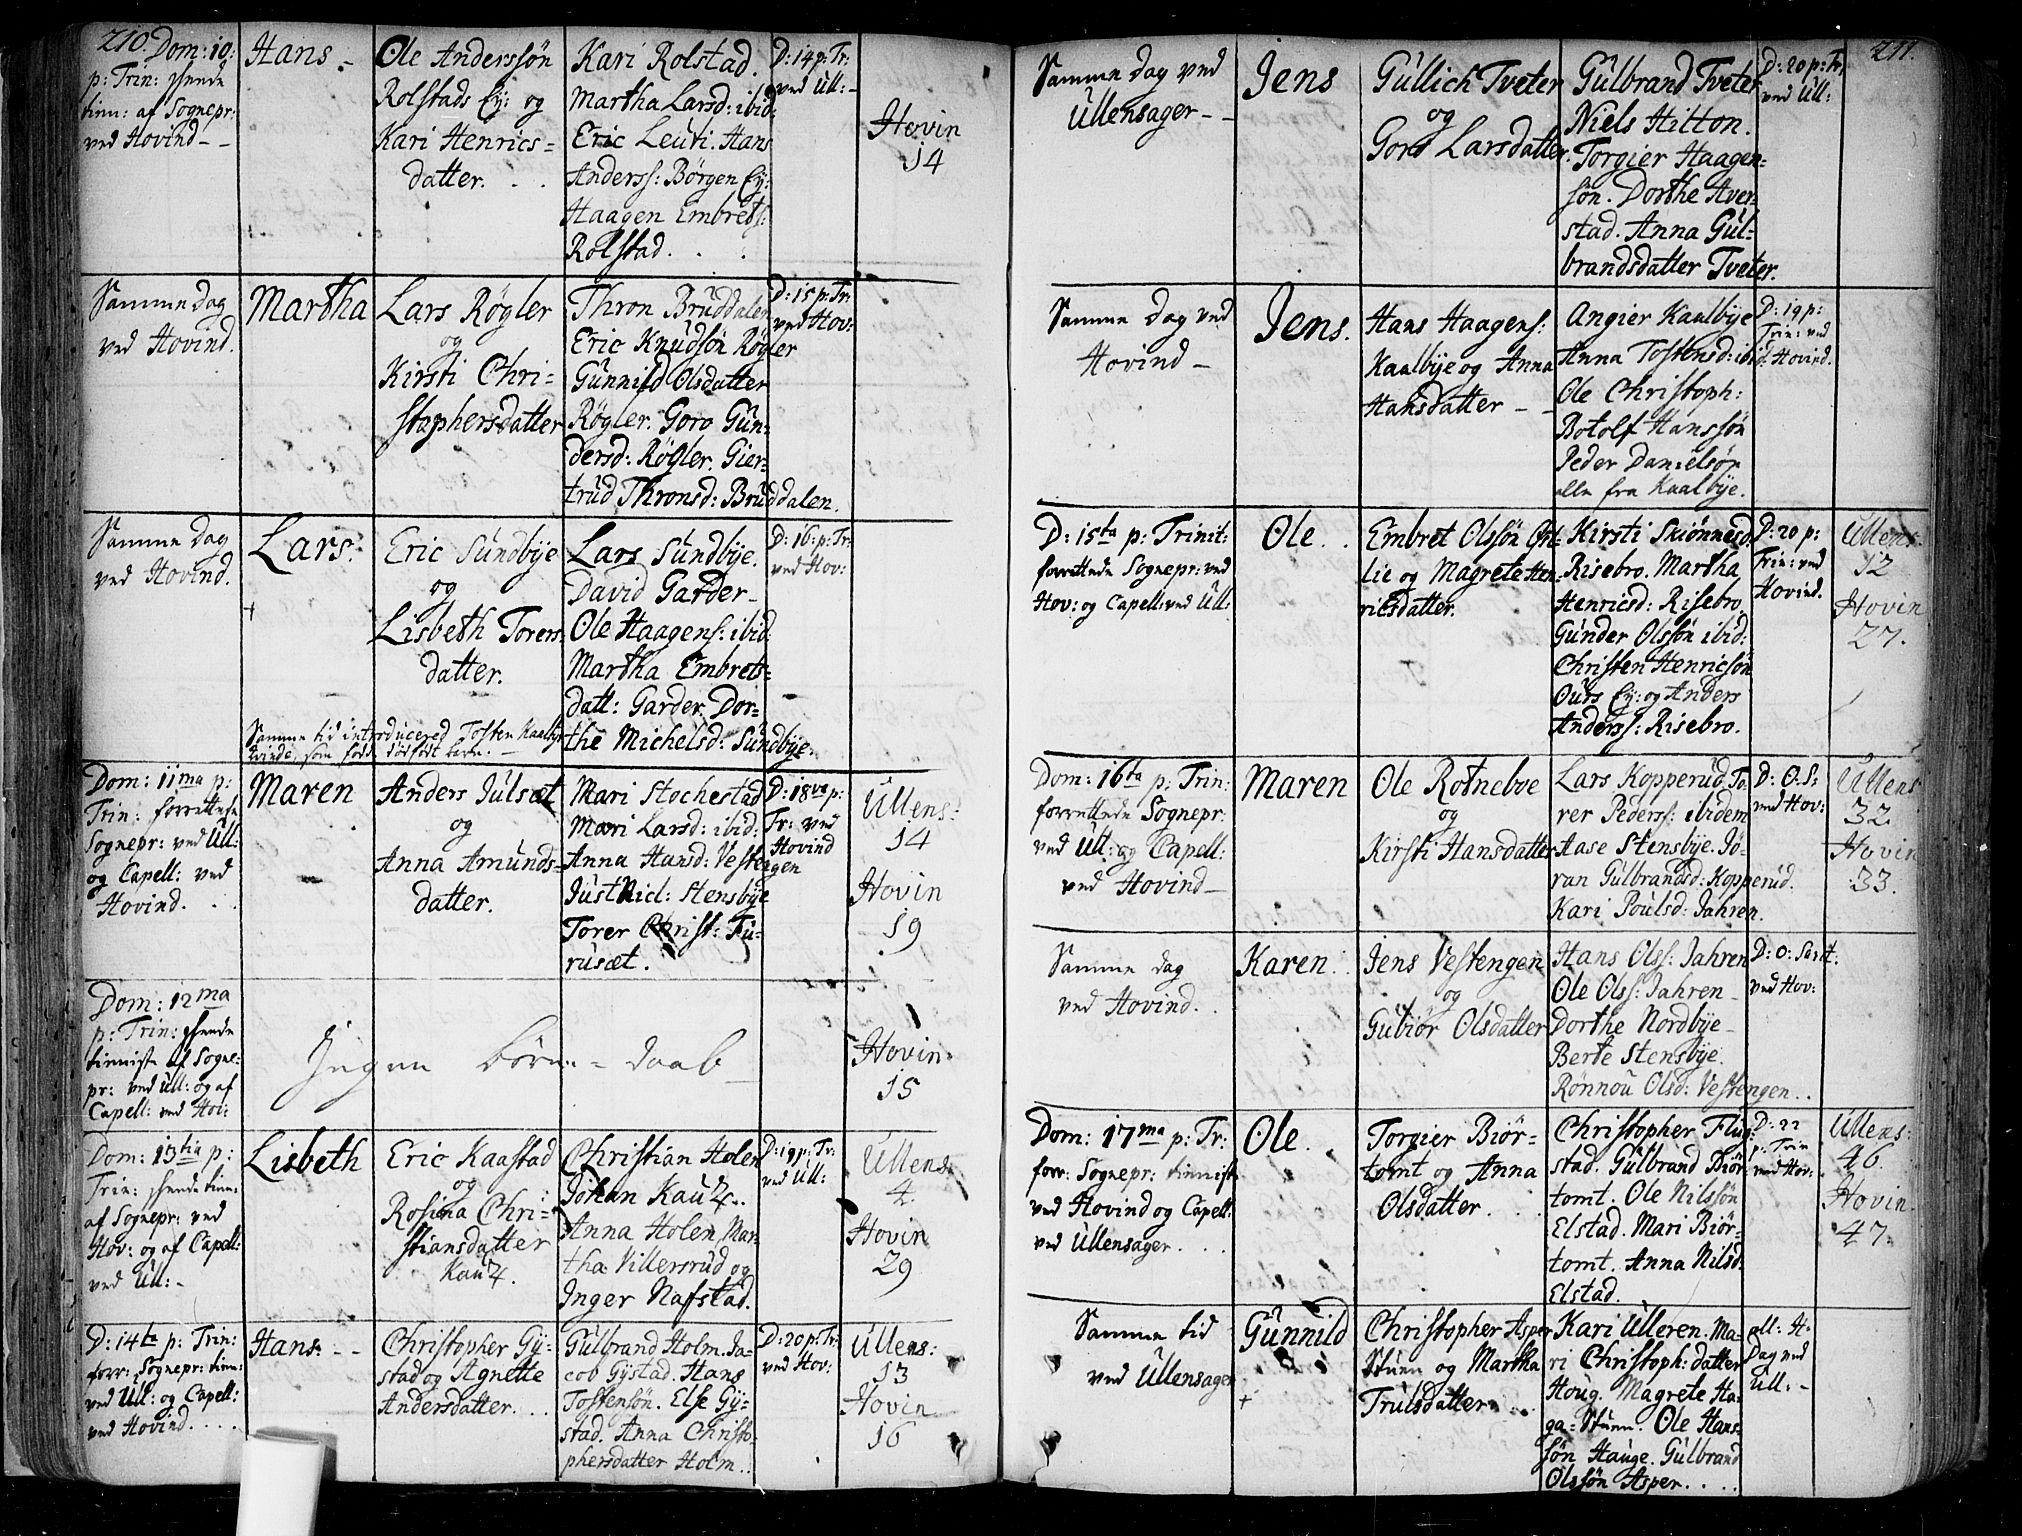 210.
Dom: 10.
p: Trin:
tien: af Sognepr:
ved Hovind - -
Hans -
Ole Anderssön
Rolstads Ey: og
Kari Henrics=
datter. . .
Kari Rolstad.
Martha Larsd: ibid:
Eric Leuti. Hans
Anderss: Börgen Ey:
Haagen Embrets:
Rolstad. . .
D: 14 p: Tr:
ved Ull: -
Hovin
14
Samme Dag
ved Hovind.
Martha
Lars Rögler
og
Kirsti Chri-
stophersdatter
Thron Bruddalen
Eric Knudsön Rögler
Gunnild Olsdatter
Rögler. Goro Gun-
dersd: Rögler. Gier-
trud Thronsd: Bruddalen.
D: 15 p: Tr:
ved Hov:
Samme Dag
ved Hovind.
Lars.
+
Eric Sundbye
og
Lisbeth Torers
datter.
Lars Sundbye.
David Garder-
Ole Haagens: ibid:
Martha Embrets-
datt: Garder. Dor-
the Michelsd: Sundbye.
D: 16 p: Tr:
ved Hov:
Samme tid introducered Tosten Kaalbye
qvinde, som föde dödfödt barn. -
Dom: 11ma p:
Trin: forrettede
Sognepr: ved Ull:
og Capell: ved
Hovind. . .
Maren
Anders Julsæt
og
Anna Amunds-
datter.
Mari Stochestad
Mari Larsd: ibid:
Anna Hansd: Vestengen
Just Nicl: Stensbye
Torer Christ: Fu-
rusæt.
D: 18 p:
Tr: ved
Hovind
Ullens:
14
Hovin
19
Dom: 12ma
p: Trin:
tienniste af Sogne-
pr: ved Ull: og af
Capell: ved Hov:
Ingen börne-daab
Hovin
15
Dom: 13tia p:
Trin: tien:
af Sognepr: ved
Hov: og af Capell:
ved Ull: -
Lisbeth
Eric Kaastad
og
Rosina Chri-
stiansdatter
Kautz.
Christian Holen
Johan Kautz.
Anna Holen. Mar-
tha Villersrud og
Inger Nafstad.
D: 19 p: Tr:
ved Ull:
Ullens:
4.
Hovin
29
D: 14ta p: Trin:
forr: Sognepr: tien:
ved Ull: og Capell:
ved Hovind. . . .
Hans - -
Christopher Gy-
stad og Agnette
Andersdatter. . .
Gulbrand Holm. Ja-
cob Gystad. Hans
Tostensön. Else Gy-
stad. Anna Christo-
phersdatter Holm..
D: 20 p: Tr:
ved Hov:
Ullens:
13
Hovin
16
211.
Samme Dag ved
Ullensager - -
Jens
Gullich Tveter
og
Goro Larsdatter.
Gulbrand Tveter
Niels Hilton.
Torgier Haagen=
sön. Dorthe Aver-
stad. Anna Gul-
brandsdatter Tveter.
D: 20 p: Tr:
ved Ull:
Samme Dag ved
Hovind -
Jens.
Hans Haagens:
Kaalbye og Anna
Hansdatter - -
Angier Kaalbye
Anna Tostensd: ibid:
Ole Christoph:
Botolf Hanssön
Peder Danielsön
alle fra Kaalbye.
D: 19 p:
Trin: ved
Hovind.
D: 15ta p: Trinit:
forrettede Sognepr: ved
Hov: og Capell: ved Ull:
Ole. .
Embret Olssön
lie og Magrete Hen-
ricsdatter.
Kirsti Skiönnesd
Risebro. Martha
Henricsd: Risebro.
Gunder Olssön ibid:
Christen Henricsön
Ours Ey: og Anders
Anderss: Risebro.
D: 20 p:
Trin: ved
Hovind.
Ullens:
12
Hovin
27.
Dom: 16ta p: Trin:
forrettede Sognepr:
ved Ull: og Capell:
ved Hovind -
Maren
Ole Rotneboe
og
Kirsti Hansdatter
Lars Kopperud. To-
rer Pederss: ibidem
Aase Stensbye. Jö-
ran Gulbrandsd: Kopperud.
Kari Poulsd: Jahren.
D: O. S:
ved Hov:
Ullens
32.
Hovin
33.
Samme dag
ved Hovind. .
Karen. .
Jens Vestengen
og
Gubiör Olsdatter
Hans Olss: Jahren
Ole Olss: Jahren-
Dorthe Nordbye-
Berte Stensbye.
Rönnou Olsd: Vestengen..
D: O: Sanct:
ved Hov:
Dom: 17ma p: Tr:
forr: Sognepr: tienniste
ved Hovind og Capell:
ved Ullensager. . .
Ole.
Torgier Biör-
tomt og Anna
Olsdatter. . .
Christopher Flug-
stad. Gulbrand Biör-
tomt. Ole Nilssön
Elstad. Mari Biör-
tomt. Anna Nilsd:
Elstad.
D: 22
p: Trin
ved Hov:
Ullens:
46.
Hovin.
47.
Samme tid
ved Ullensager
Gunnild
+
Christopher Asper
Stuen og Martha
Trulsdatter. . .
Kari Ulleren. Ma-
ri Christoph: datter
Houg. Magrete Ha-
ga-Stuen. Ole Hans-
sön Hauge. Gulbrand
Olssön Asper. . . .
all: H:
Dag ved
Ull: -